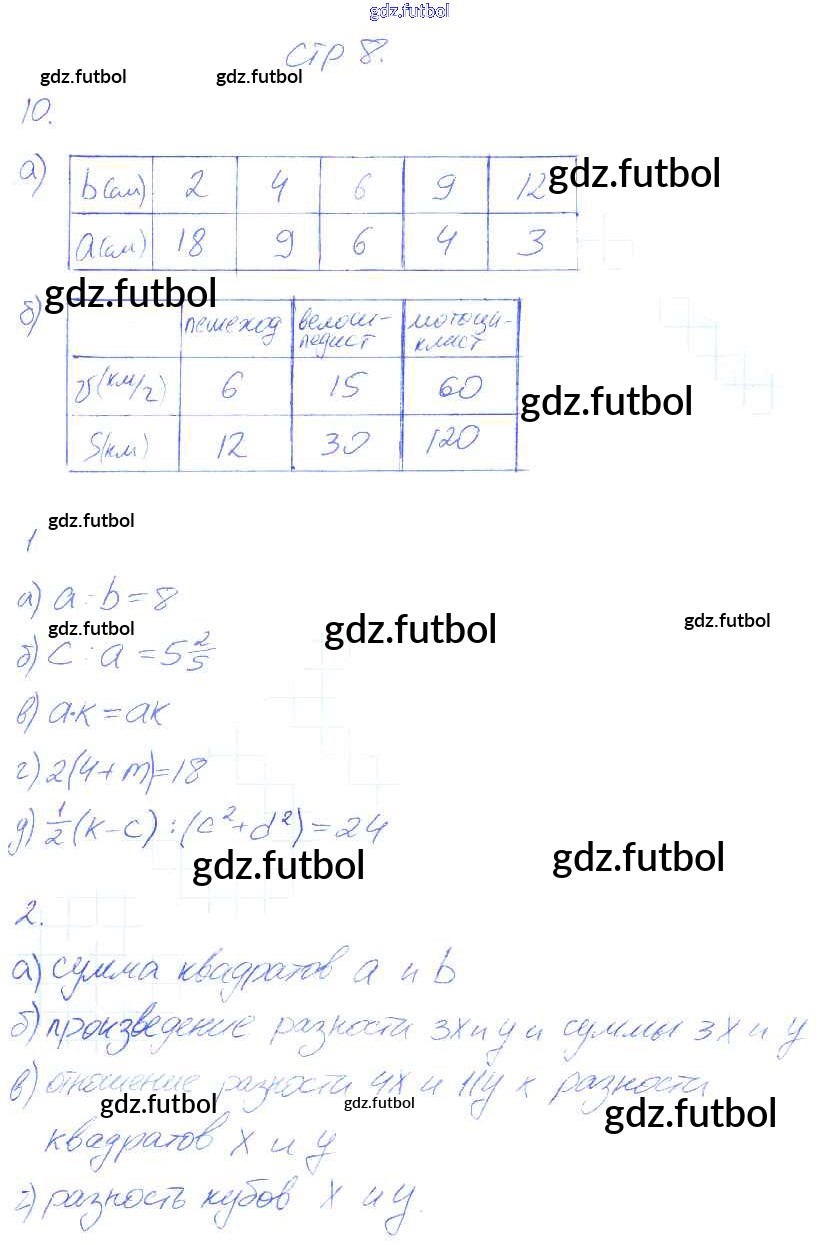 gdz.futbol
стр 8.
gdz.futbol gdz.futbol
10.
а) b(см) 2 4 6 9 12 gdz.futbol
a(см) 18 9 6 4 3
gdz.futbol
б) пешеход велоси- мотоци-
педист класт
v(км/г) 6 15 60 gdz.futbol
S(км) 12 30 120
gdz.futbol
1
а) a : b = 8
gdz.futbol gdz.futbol gdz.futbol
б) c : a = 5 2/5
в) a·к = aк
г) 2(4+m)=18
д) 1/2 (к-c) : (c²+d²) = 24
gdz.futbol gdz.futbol
2.
а) сумма квадратов a и b
б) произведение разности 3x и y и суммы 3x и y
в) отношение разности 4x и 11y к разности
gdz.futbol gdz.futbol gdz.futbol
квадратов x и y
г) разность кубов x и y.